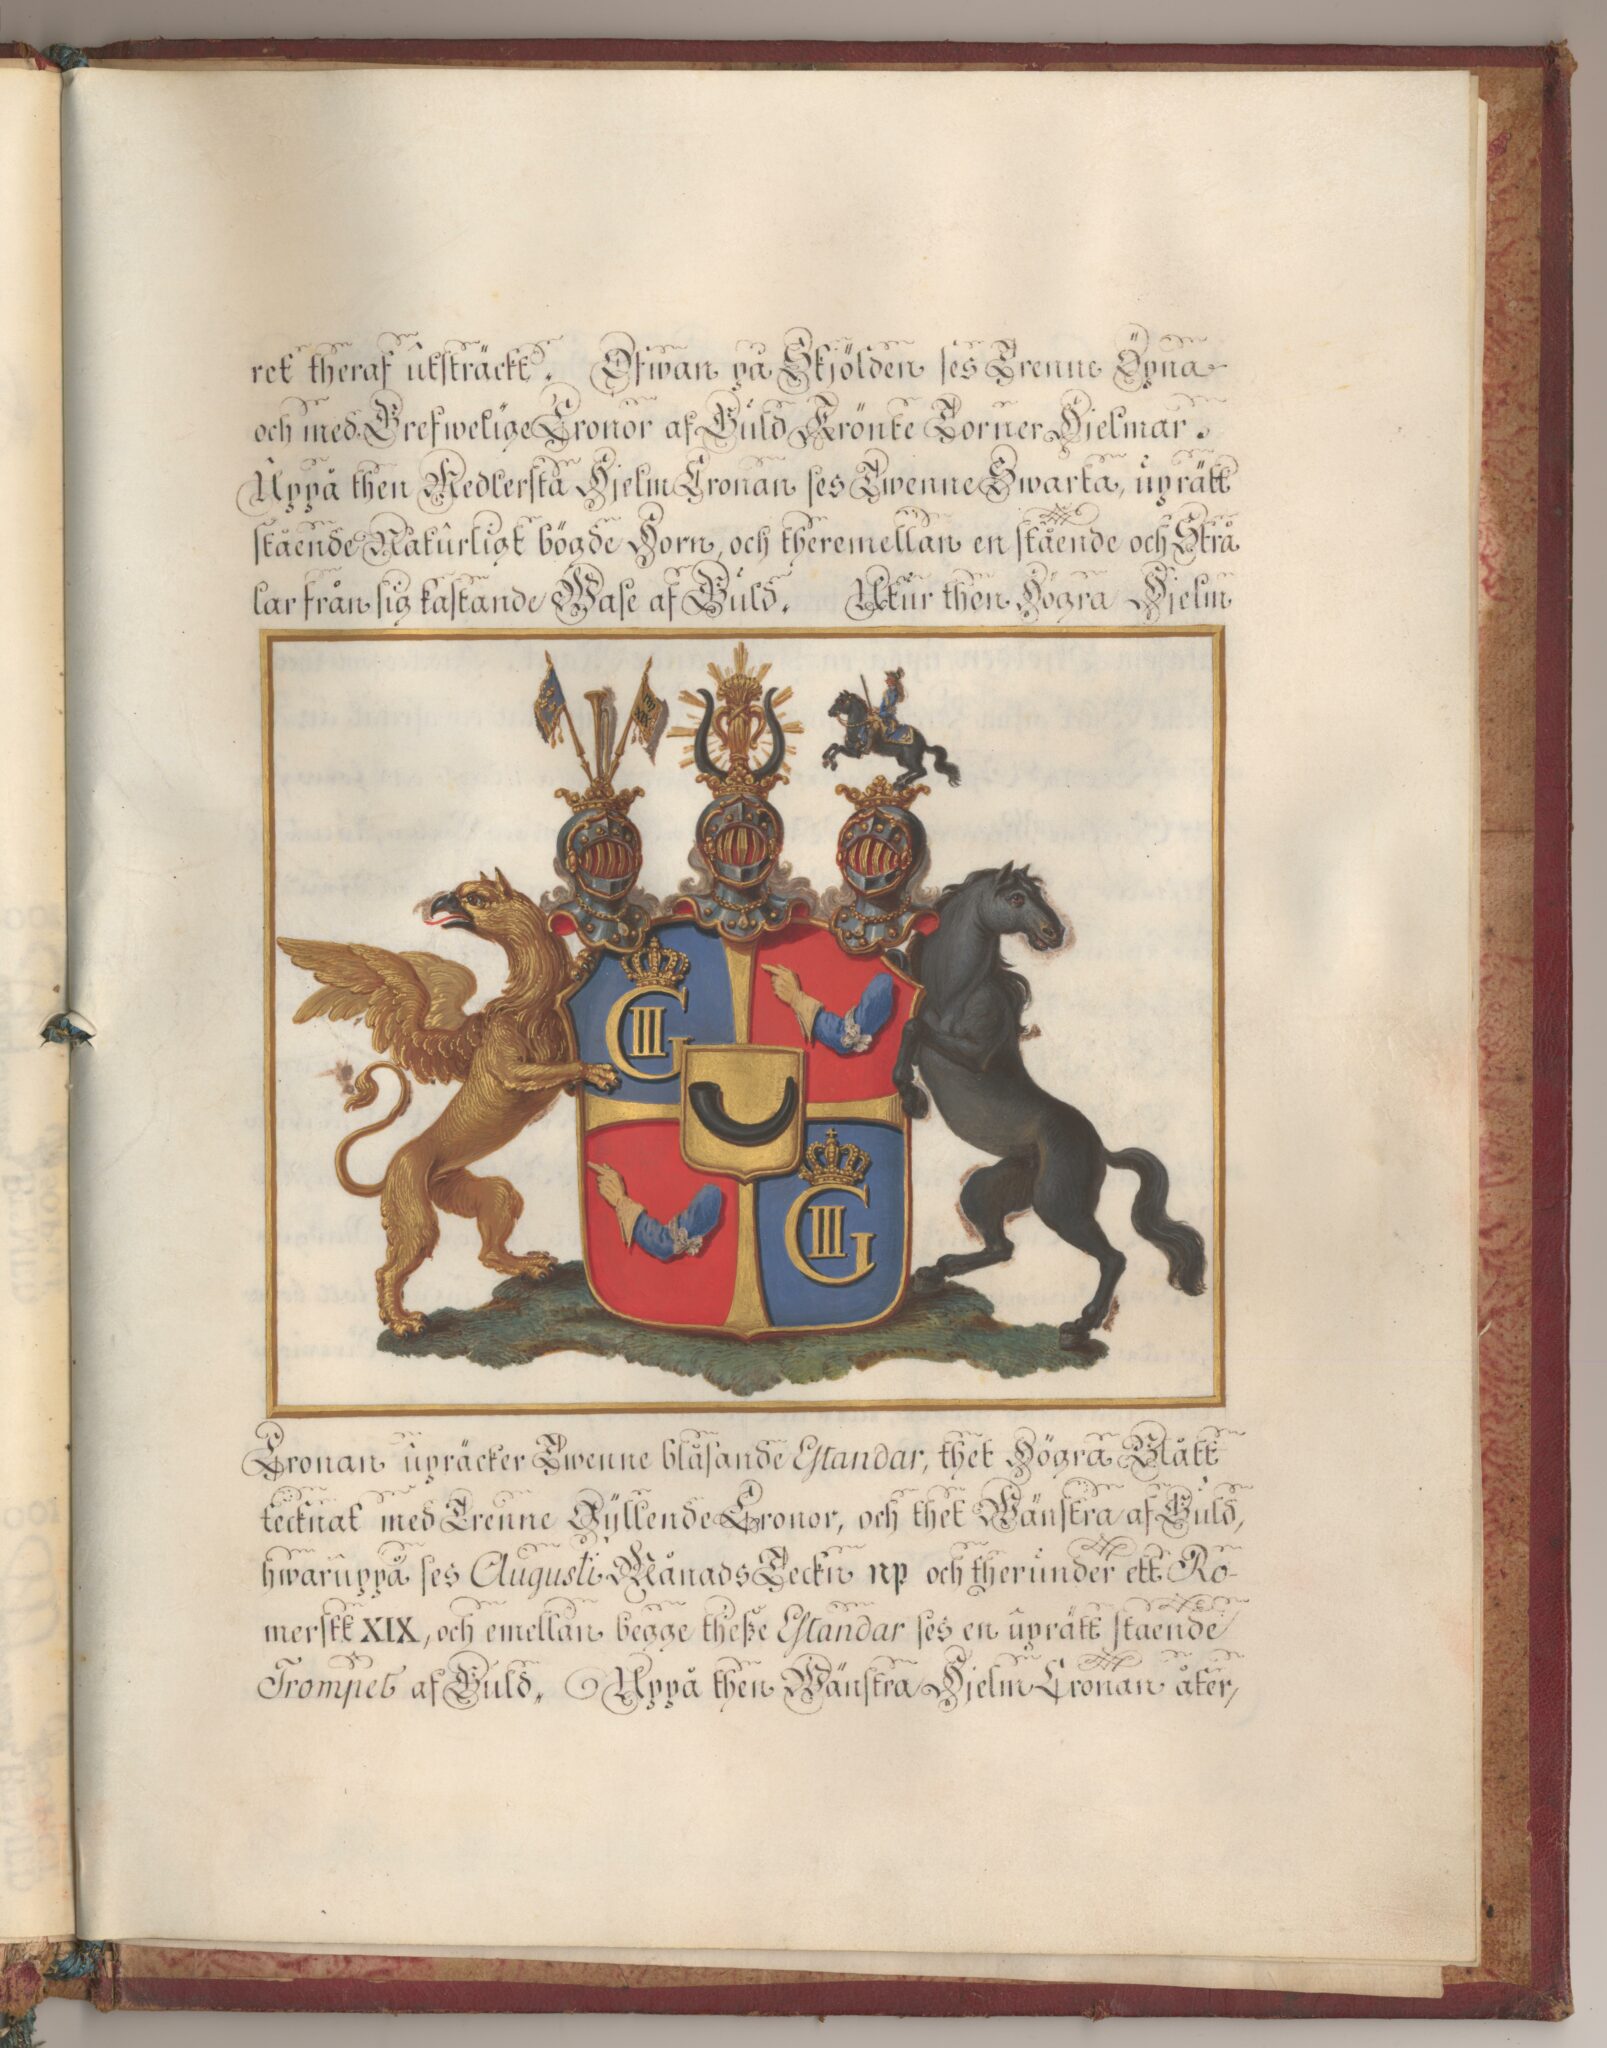 ret theraf utsträckt. Ofwan på Skjölden ses Trenne Öpna
och med Grefwelige Cronor af Guld Krönte Torner Hjelmar.
Uppå then Medlersta Hjelm Cronan ses Twenne Swarta, uprätt
stående Naturligt bögde Horn, och theremellan en stående och Strå
lar från sig kastande Wase af Guld. Utur then Högra Hjelm
XIX
G III
G III
Cronan upräcker Twenne blåsande Estandar, thet Högra Blått
tecknat med Trenne Gyllende Cronor, och thet Wänstra af Guld,
hwaruppå ses Augusti Månads Teckn np och therunder ett Ro-
merskt XIX, och emellan begge theße Estandar ses en uprätt staende
Trompet af Guld. Uppå then Wänstra Hjelm Cronan åter,